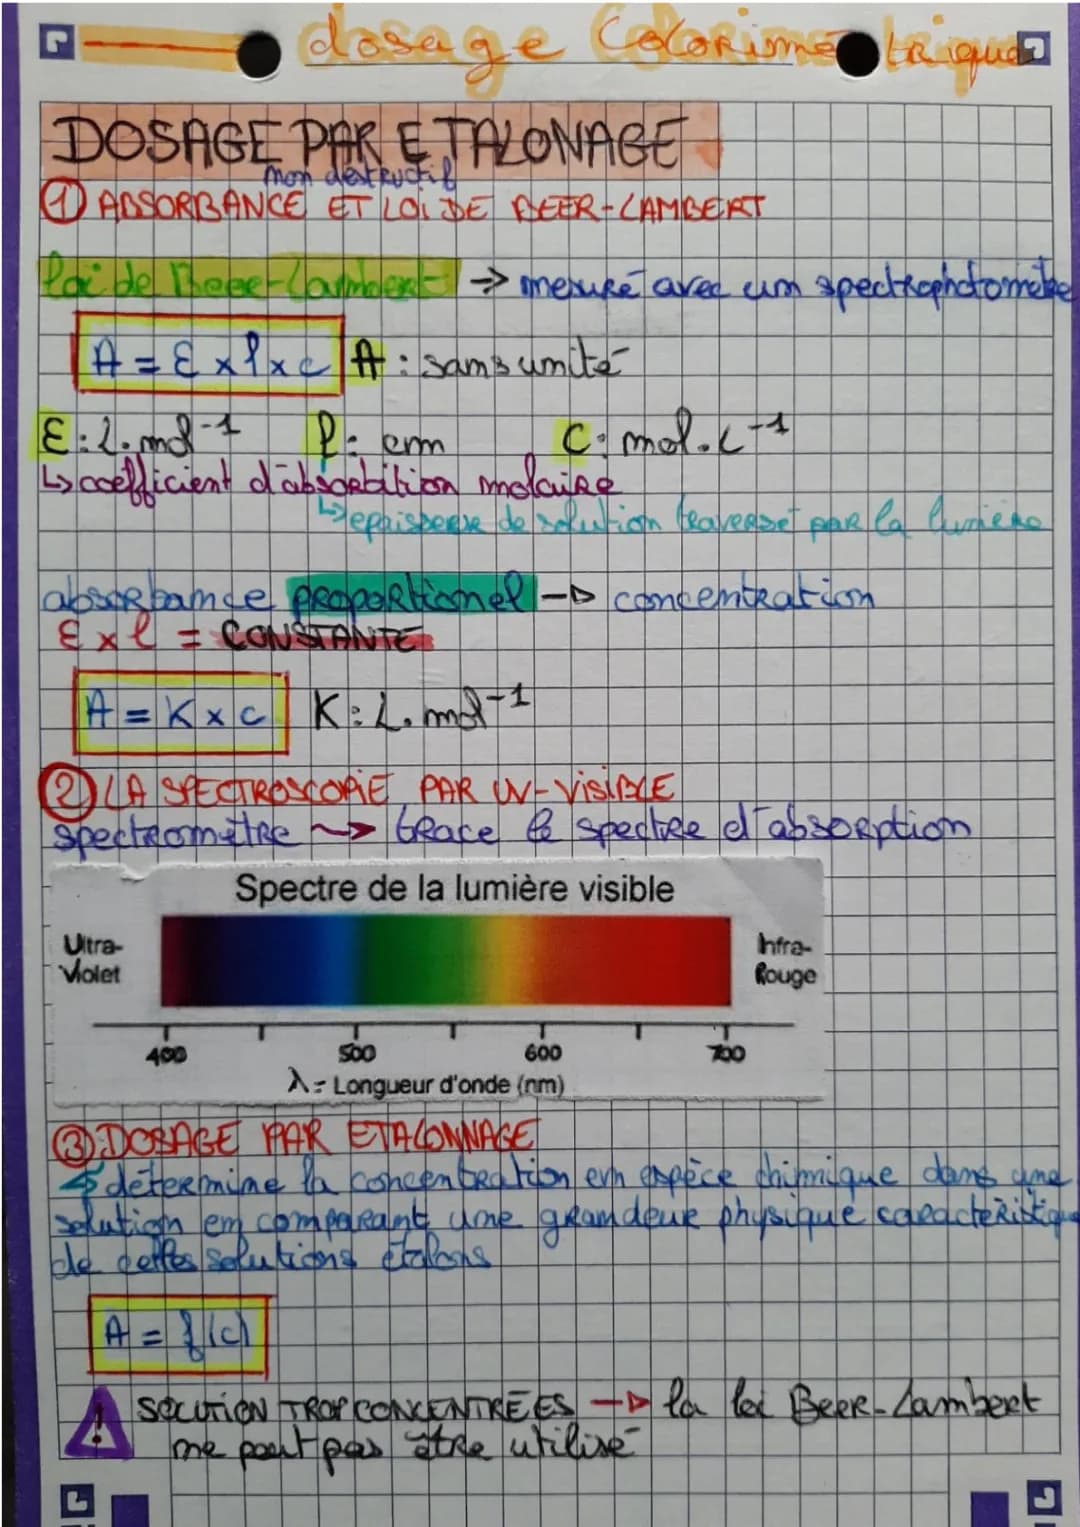 dosage Colorimétrique
DOSAGE PAR ETALONAGE
non destructif
① ABSORBANCE ET LOI DE BEER-LAMBERT
loi de Beer-Lambert → mesuré avec um spectrophotomètre
A = Ɛ x l x c A : sans unité
Ɛ : L.mol⁻¹ l : cm C : mol.L⁻¹
↳ coefficient d'absorbition molaire
↳ epaisseur de solution traversé par la lumière
absorbance proportionel → concentration
Ɛ x l = CONSTANTE
A = K x c K : L.mol⁻¹
② LA SPECTROSCOPIE PAR UV-VISIBLE
spectromètre ~> trace le spectre d'absorption
Spectre de la lumière visible
Ultra-Violet
Infra-Rouge
400 500 600 700
λ = Longueur d'onde (nm)
③ DOSAGE PAR ETALONNAGE
↳ détermine la concentration en espèce chimique dans une
solution en comparant une grandeur physique caractéristique
de celles solutions étalons
A = f(c)
! SOLUTION TROP CONCENTRÉES → la loi Beer-Lambert
ne peut pas être utilisé